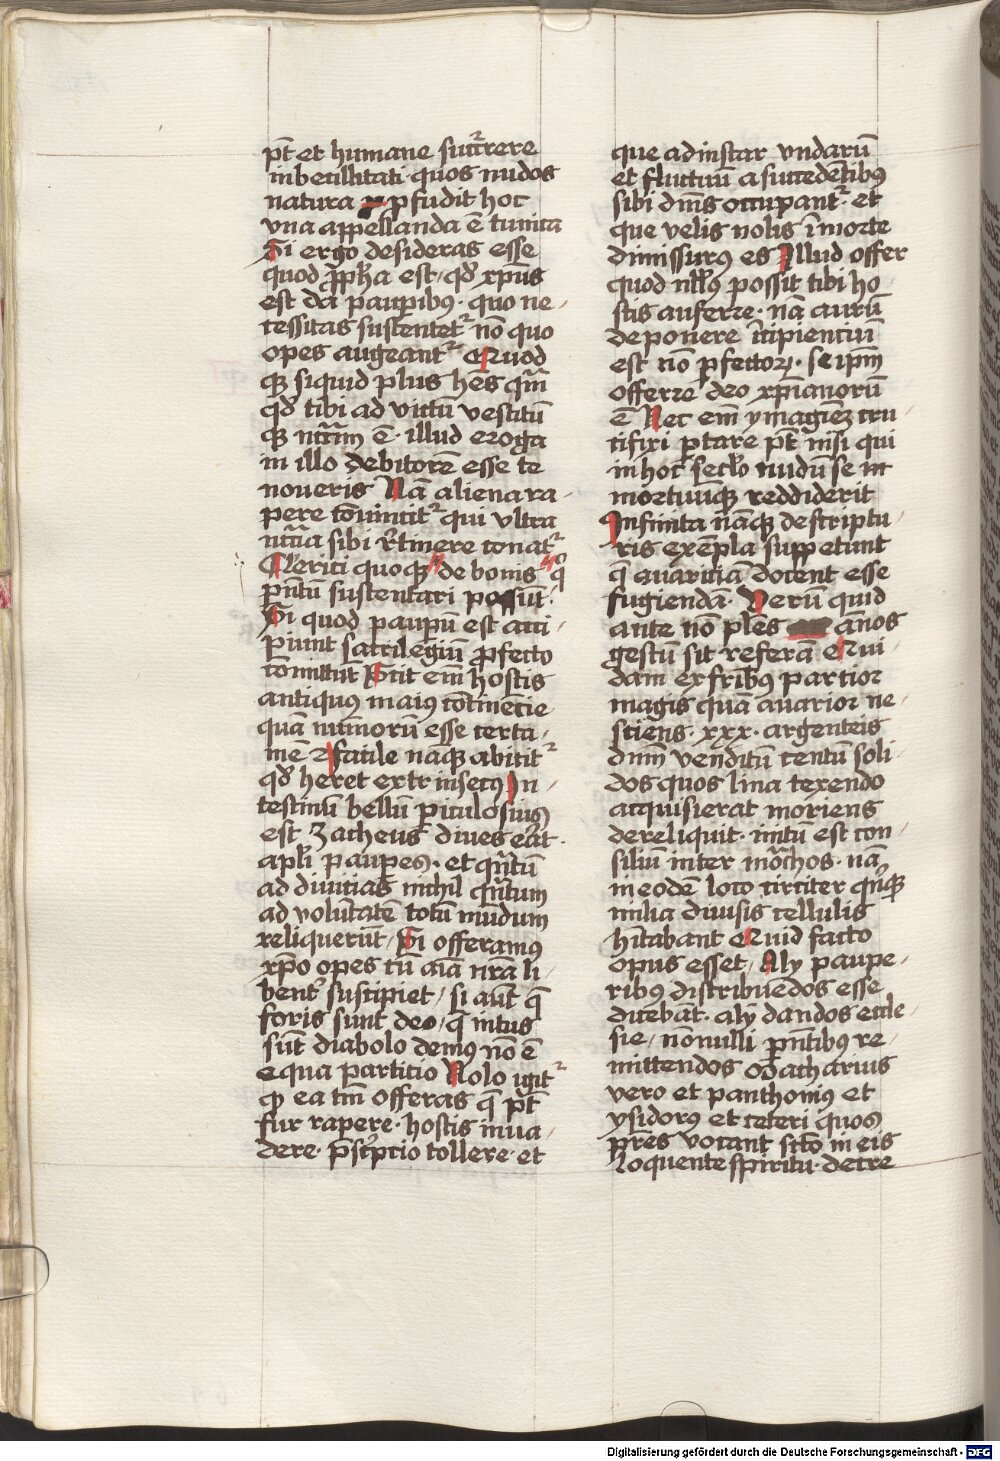 pt̄ et humane succ̄rere
inbecillitati quos nudos
natura ꝓfudit hoc
vna appellanda ē tunica
Si ergo desideras esse
quod ꝓpħa est / qd̄ xp̄us
est da pauꝑibꝰ · quo ne /
cessitas sustentet᷑ nō quo
opes augeant᷑ Quod
qꝫ siquid plus hēs qm̄
qd̄ tibi ad victū vestitū
qꝫ nccrm̄ ē · illud eroga
in illo debitorē esse te
noueris Nā aliena ra /
pere cōuincit᷑ qui vltra
nccīa sibi r̄tinere conat᷑
Clerici quoqꝫ de bonis q̇
pn̄tū sustentari possūt ·
Si quod pauꝑū est acci /
piunt sacrilegiū ꝓfecto
cōmittūt Scit em̄ hostis
antiquꝰ maiꝰ cōtinēcie
quā num̄orū esse certa /
mē facile nāqꝫ abicit᷑
qd̄ heret extrinsecꝰ In /
testinū bellū ꝑiculosius
est Zacheus diues erat ·
apl̄i pauꝑes · et qn̄tū
ad diuicias nichil qn̄tum
ad volūtatē totū mūdum
reliquerūt / Si offeramꝰ
xp̄o opes cū aīa nr̄a li /
bent᷑ suscipiet / si aūt q̄
foris sunt deo / q̄ intus
sūt diabolo demꝰ nō ē
equa particio Nolo igit᷑
qꝫ ea tm̄ offeras q̄ pt̄
fur rapere · hostis inua /
dere · p̄scͥpcio tollere · et
que ad instar vndarū
et fluctuū a succedētibꝰ
sibi dn̄is occupant᷑ · et
que velis nolis ī morte
dimissurꝰ es Illud offer
quod nllꝰ possit tibi ho /
stis auferre · nā aurū
deponere īcipienciū
est nō ꝑfectoꝝ · seip̄m
offerre deo xp̄ianorū
ē Nec em̄ ymaginēꝫ cru /
cifixi portare pt̄ nisi qui
in hoc seclo nudū se et
mortuūqꝫ reddiderit
Infinita nāqꝫ de scriptu /
ris exēpla suppetunt
q̄ auariciā docent esse
fugiendā · Verū quid
ante nō plēs ānos
gestū sit referā Qui /
dam ex fribꝰ parcior
magis quā auarior ne /
sciens · xxx · argenteis
dnm̄ venditū centū soli /
dos quos lina texendo
acquisierat moriens
dereliquit · initū est con /
siliū inter mōchos · nā
in eodē loco circiter qn̄qꝫ
milia diuisis cellulis
hītabant Quid facto
opus esset / Aly pauꝑe /
ribꝰ distribuēdos esse
dicebāt · aly dandos eccle /
sie / nōnulli pn̄tibꝰ re /
mittendos Macharius
vero et panthoniꝰ et
ysidorꝰ et ceteri quos
pr̄es vocant scto in eis
loquente spiritu · decre
Digitalisierung gefördert durch die Deutsche Forschungsgemeinschaft - DFG